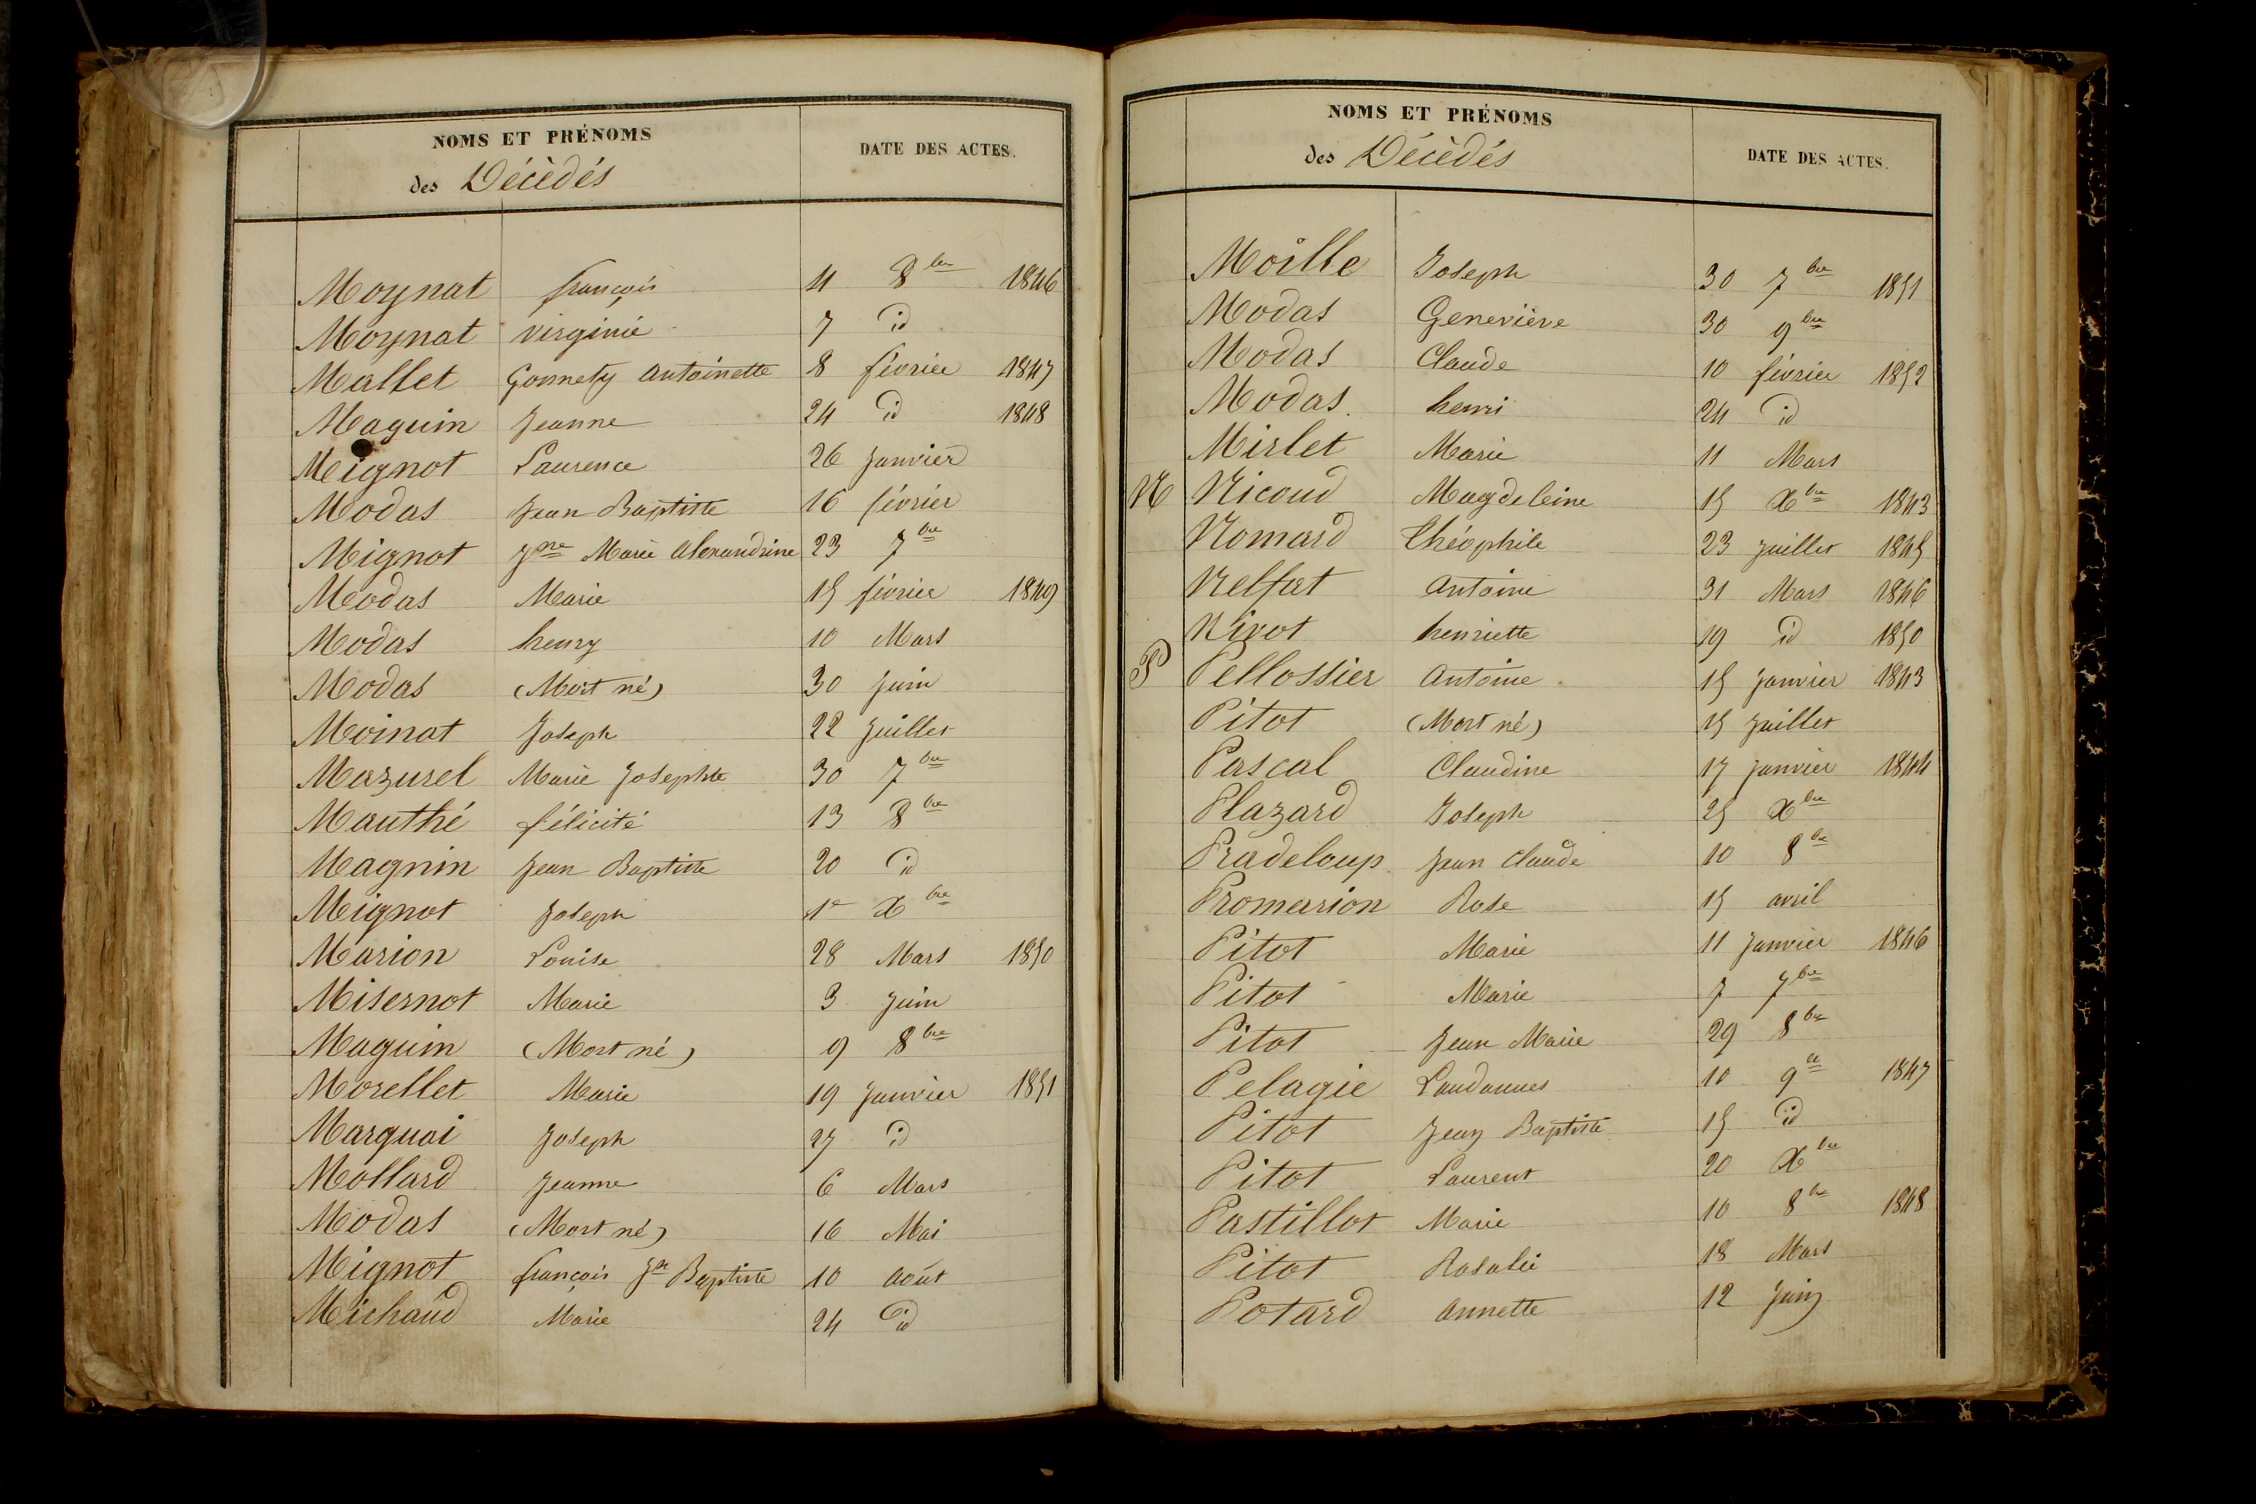 NOMS ET PRÉNOMS
des Décédés
DATE DES ACTES.
Moynat françois 4 8bre 1846
Moynat virginie 7 id
Mallet Gonnety Antoinette 8 février 1847
Maguin Jeanne 24 id 1848
Mignot Laurence 26 Janvier
Modas Jean Baptiste 16 février
Mignot Jne Marie Alexandrine 23 7bre
Modas Marie 15 février 1849
Modas henry 10 Mars
Modas (Mort né) 30 Juin
Moinat Joseph 22 Juillet
Mazurel Marie Josephte 30 7bre
Mauthé félicité 13 8bre
Magnin Jean Baptiste 20 id
Mignot Joseph 1er Xbre
Marion Louise 28 Mars 1850
Misernot Marie 3 Juin
Maguin (Mort né) 9 8bre
Morellet Marie 19 Janvier 1851
Marquoi Joseph 27 id
Mollard Jeanne 6 Mars
Modas (Mort né) 16 Mai
Mignot françois Jn Baptiste 10 Août
Michaud Marie 24 id
NOMS ET PRÉNOMS
des Décédés
DATE DES ACTES.
Moille Joseph 30 7bre 1851
Modas Geneviève 30 9bre
Modas Claude 10 février 1852
Modas henri 24 id
Mirlet Marie 11 Mars
N Nicoud Magdeleine 15 Xbre 1843
Nomard théophile 23 Juillet 1845
Nelfat Antoine 31 Mars 1846
Nivot henriette 19 id 1850
P Pellossier Antoine 15 Janvier 1843
Pitot (Mort né) 15 Juillet
Pascal Claudine 17 Janvier 1844
Plazard Joseph 25 Xbre
Pradeloup Jean Claude 10 8bre
Promarion Rose 15 avril
Pitot Marie 11 Janvier 1846
Pitot Marie 7 7bre
Pitot Jean Marie 29 8bre
Pelagie Laudannes 10 9re 1847
Pitot Jean Baptiste 15 id
Pitot Laurent 20 Xbre
Pastillot Marie 10 8bre 1848
Pitot Rosalie 18 Mars
Potard Annette 12 Juin